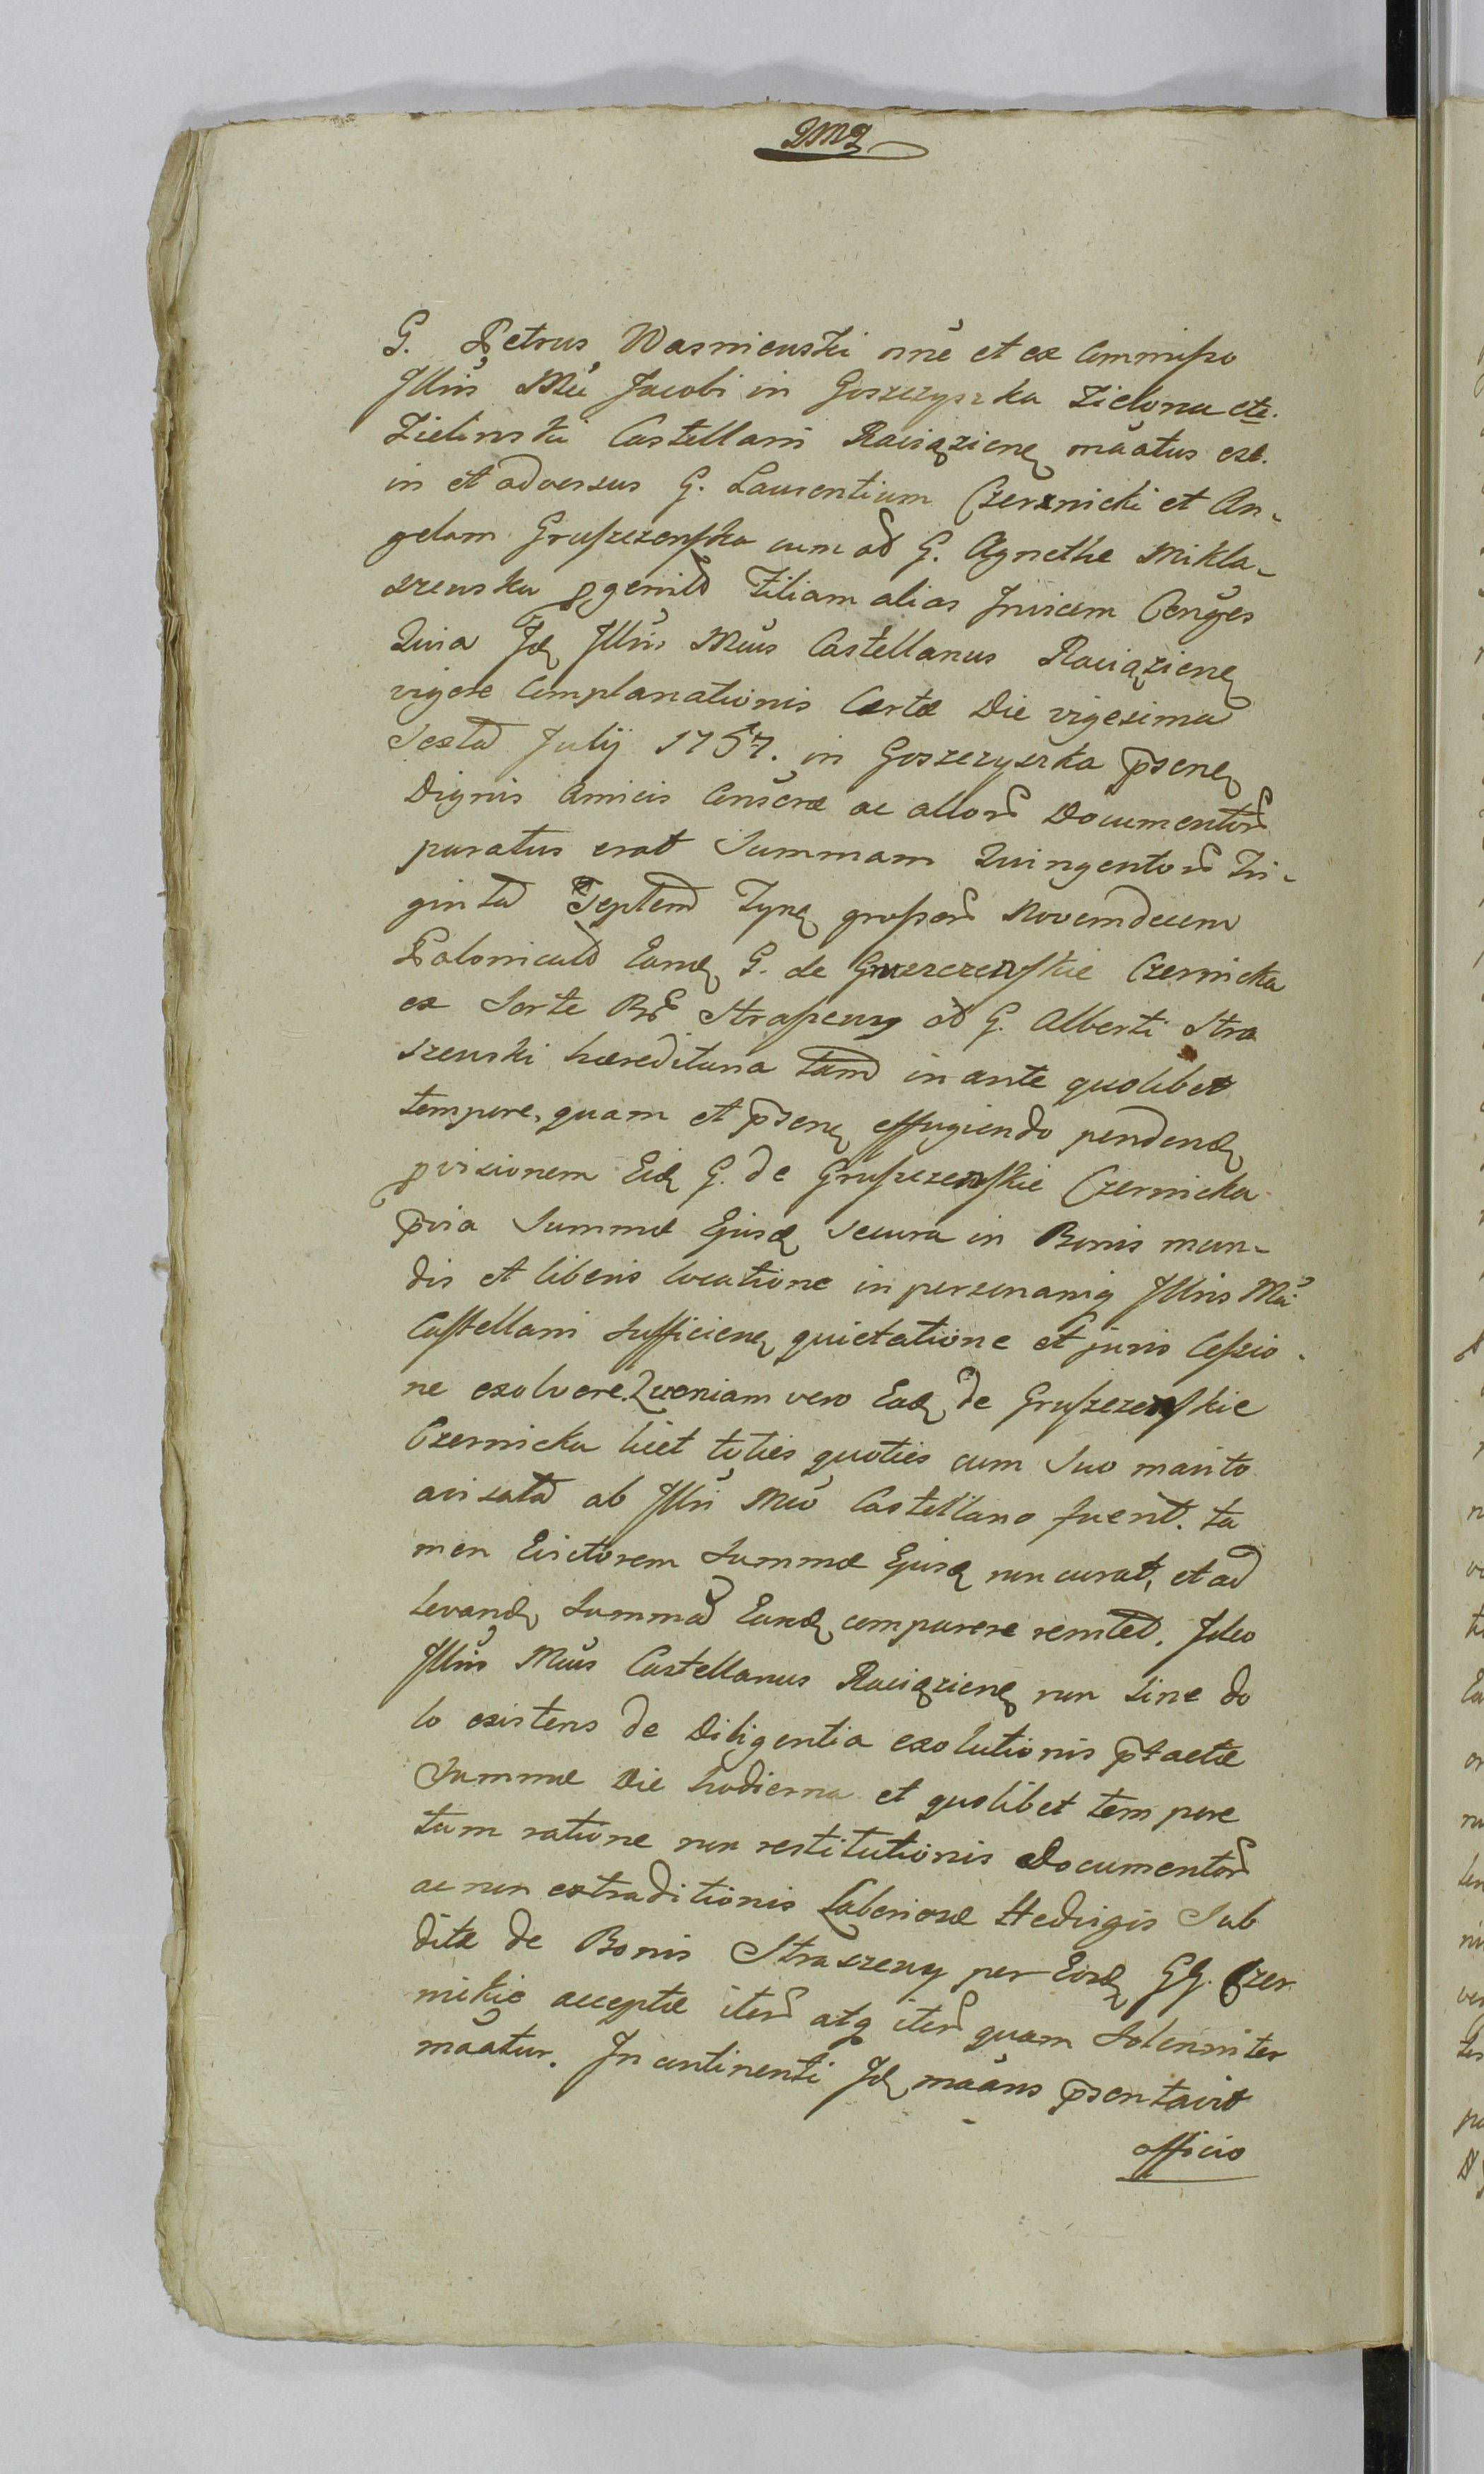 JMJ
G. Petrus Wasniewski nne et ex Commisso
Jllris Mci Jacobi in Goszczyszka Zielona etc.
Zielinski Castellani Raciązienę maatus est.
in et adversus G. Laurentium Czerznicki et An-
gelam Gruszczenska cum ad G. Agnethe Mikla-
szewska pgenitā Filiam alias Invicem Conges
Quia Jdę Jllris Mcus Castellanus Raciązienę
vigore Complanationis Certæ Die vigesima
Sexta Julij 1757. in Goszczyszka psenę
Dignis Amicis Conscræ ac allorū Documentorū
paratus erat Summam Quingentorū Tri-
ginta Septem Tynę grossorū Novemdecem
Polonicalū Eandę G. de Gruszczenskie Czernicka
ex Sorte Bonorū Straszewy od G. Alberti Stra
szewski hæreditaria tam in ante quolibet
tempore, quam et psenę effugiendo pendendę
pvisionem Eidę G. de Gruszczenskie Czernicka
pvia Summæ Ejusdę secura in Bonis mun-
dis et liberis locatione in personamq Jllris Mci
Castellani sufficienę quietatione et juris Cessio-
ne exolvere. Quoniam vero Eadę de Gruszczenskie
Czernicka licet toties quoties cum Suo marito
avisata ab Jllri Mco Castellano fuerit. ta
men Evictorem Summæ Ejusdę non curat, et ad
levandę Summam Eandę comparere renitet. Jdeo
Jllris Mcus Castellanus Raciązienę non sine do
lo existens de Diligentia exolutionis ptactæ
Summæ Die hodierna et quolibet tempore
tum ratione non restitutionis Documentorū
ac non extraditionis Laboriosæ Hedvigis Sub
ditæ de Bonis Straszewy per Eosdę GG. Czer
nickie acceptæ iterū atq iterū quam Solenniter
maatur. In continenti Jdę maans psentavit
officio